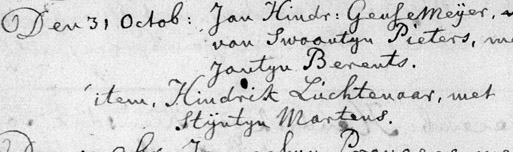 Den 31 Octob: Jan Hindr: GeuseMeÿer,
van Swaantyn Pieters, me
Jantyn Berents.
item, Hindrik Lúchtenaar, met
Stÿntyn Martens.